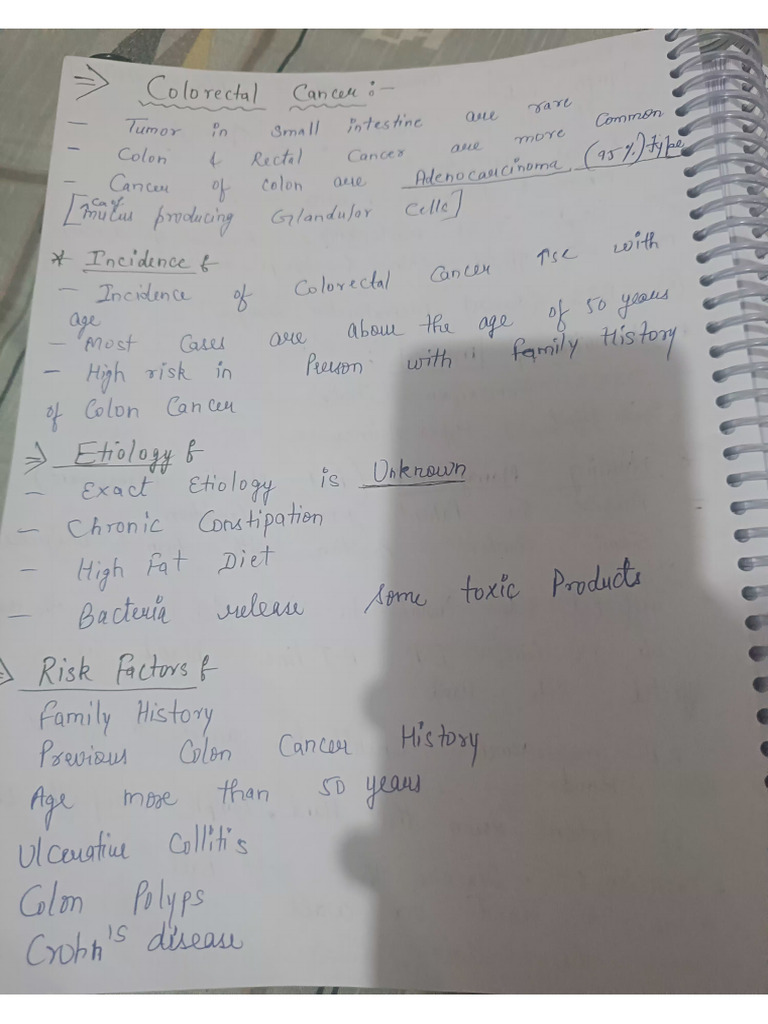 ⇒ Colorectal Cancer :-
- Tumor in small intestine are rare
- Colon & Rectal Cancer are more common
- Cancer of colon are Adenocarcinoma (95%) type
[Ca of mucus producing Glandular Cells]
* Incidence :
- Incidence of Colorectal Cancer ↑se with
age
- Most Cases are above the age of 50 years
- High risk in Person with family History
of Colon Cancer
⇒ Etiology :
- Exact Etiology is Unknown
- Chronic Constipation
- High Fat Diet
- Bacteria release some toxic Products
⇒ Risk Factors :
Family History
Previous Colon Cancer History
Age more than 50 years
Ulcerative Collitis
Colon Polyps
Crohn's disease